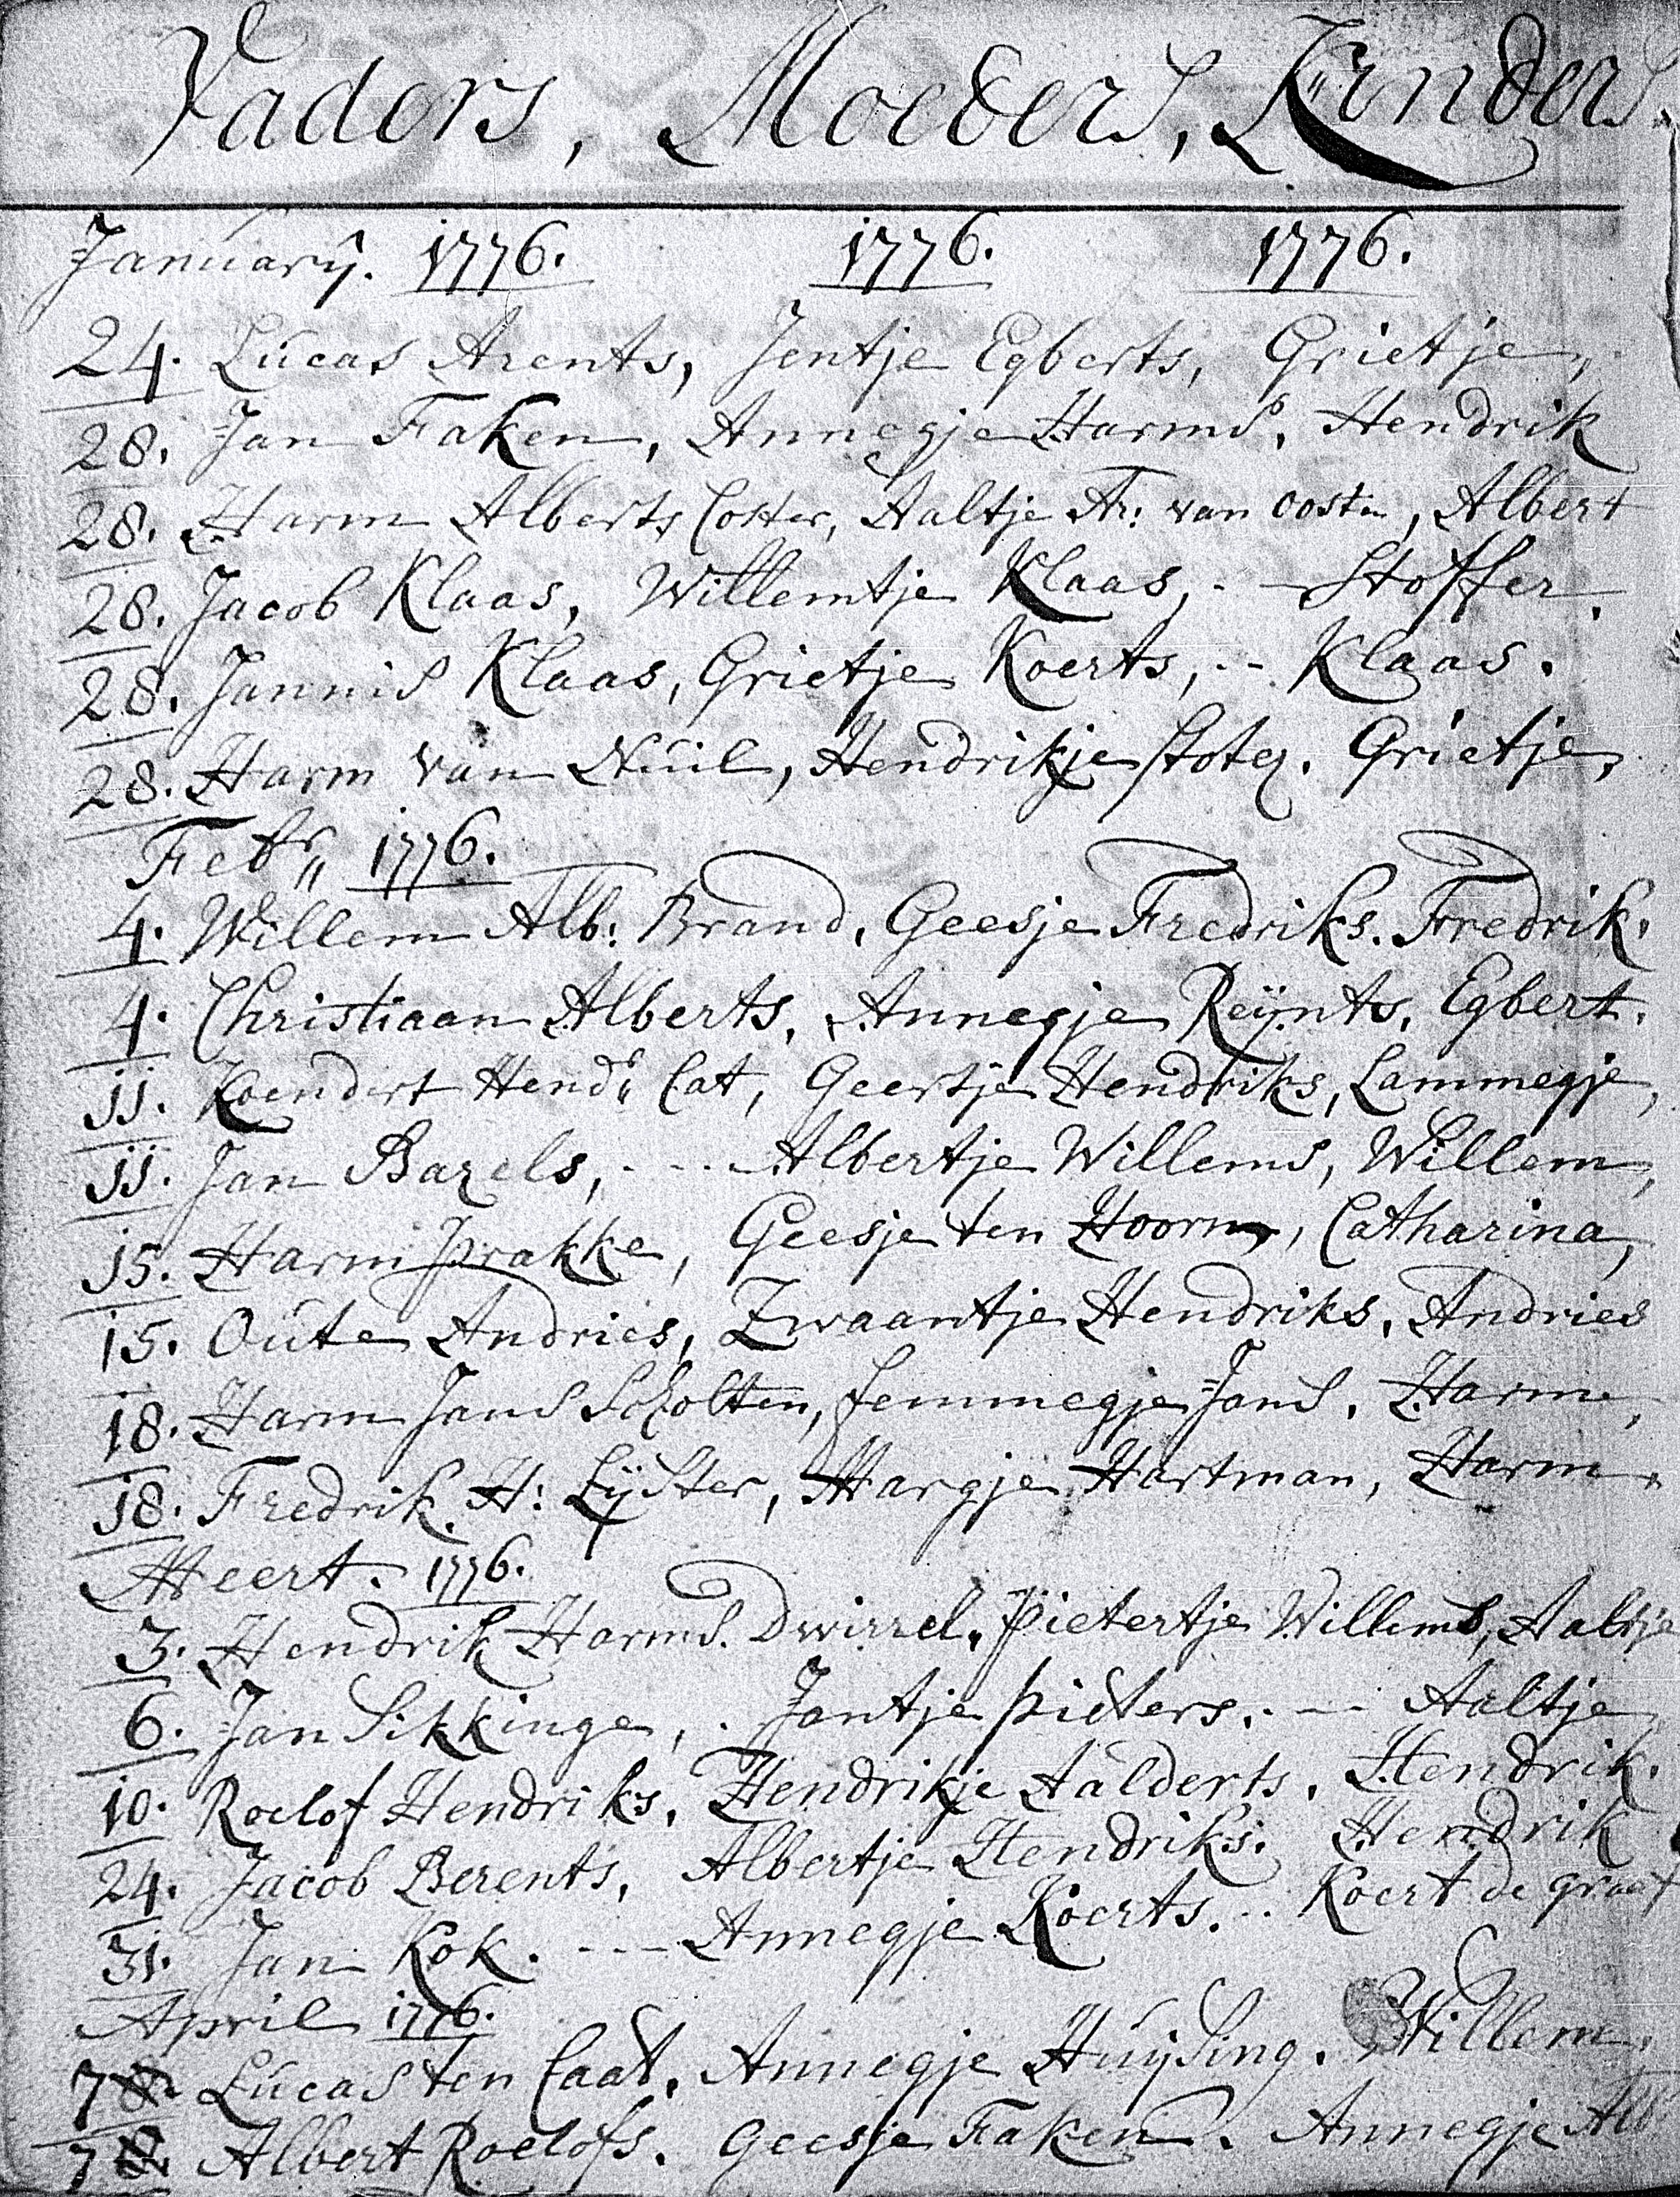 Vaders, Moeders, Kinders.
January. 1776. 1776. 1776.
24. Lucas Arents, Jentje Egberts, Grietje,
28. Jan Faken, Annegje Harms, Hendrik
28. Harm Alberts Coster, Aaltje Ar: van oosten, Albert
28. Jacob Klaas, Willemtje Klaas, - Stoffer.
28. Jannis Klaas, Grietje Koerts, -- Klaas.
28. Harm van Nuil, Hendrikje Grietje,
Febr„ 1776.
4. Willem Alb: Brand, Geesje Fredriks. Fredrik.
4. Christiaan Alberts, Annegje Reÿnts, Egbert.
11. Koendert Hendr Cat, Geertje Hendriks, Lammegje,
11. Jan Bazels, - - - Albertje Willems, Willem,
15. Harm Prakke, Geesje ten Hoorn, Catharina,
15. Oute Andries, Zwaantje Hendriks, Andries
18. Harm Jans Scholten, Femmegje Jans, Harm,
18. Fredrik H: Lÿster, Margje Hartman, Harm,
Meert. 1776.
3. Hendrik Harms. Dwirrel, Pietertje Willems, Aaltje
6. Jan Sikkinge, . Jantje Pieters, - - Aaltje
10. Roelof Hendriks, Hendrikje Aalderts, Hendrik.
24. Jacob Berents, Albertje Hendriks. Hendrik
31. Jan Kok. --- Annegje Koerts. -- Koert de graaf
April 1776.
7 Lucas ten Caat, Annegje Huijsing. Willem,
7 Albert Roelofs. Geesje Faken. Annegje Alb